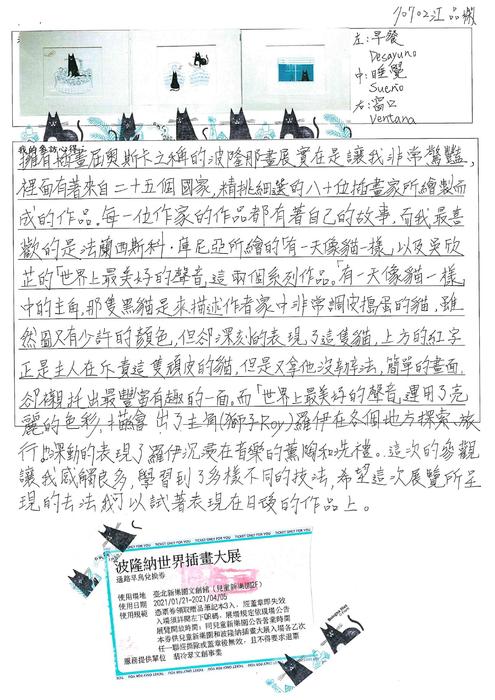 10702江品嫺
左:早餐
Desayuno
中:睡覺
Sueño
右:窗口
Ventana
我的參訪心得:
擁有插畫屆奧斯卡之稱的波隆那畫展實在是讓我非常驚艷,
裡面有著來自二十五個國家,精挑細選的八十位插畫家所繪製而
成的作品。每一位作家的作品都有著自己的故事,而我最喜
歡的是法蘭西斯科·庫尼亞所繪的「有一天像貓一樣」以及吳欣
芷的「世界上最美好的聲音」這兩個系列作品。「有一天像貓一樣」
中的主角,那隻黑貓是來描述作者家中非常調皮搗蛋的貓,雖
然圖只有少許的顏色,但卻深刻的表現了這隻貓,上方的紅字
正是主人在斥責這隻頑皮的貓,但是又拿他沒辦法,簡單的畫面,
卻襯托出最豐富有趣的一面。而「世界上最美好的聲音」運用了亮
麗的色彩,描繪出了主角(獅子Roy)羅伊在各個地方探索、旅
行,深動的表現了羅伊沉浸在音樂的薰陶和洗禮。這次的參觀
讓我感觸良多,學習到了多樣不同的技法,希望這次展覽所呈
現的去法我可以試著表現在日後的作品上。
TICKET ONLY FOR YOU
波隆納世界插畫大展
通路早鳥兌換券
使用場地 臺北新樂園文創館(兒童新樂園2F)
使用日期 2021/01/21-2021/04/05
使用規範 憑票券領取贈品筆記本3入,經蓋章即失效
入場須詳閱左下QR碼,展場規定依現場公告
展覽開放時間:同兒童新樂園公告營業時間
本券供兒童新樂園和波隆納插畫大展入場各乙次
任一聯經撕除或蓋章後無效,且不得要求退票
服務提供單位 翡冷翠文創事業